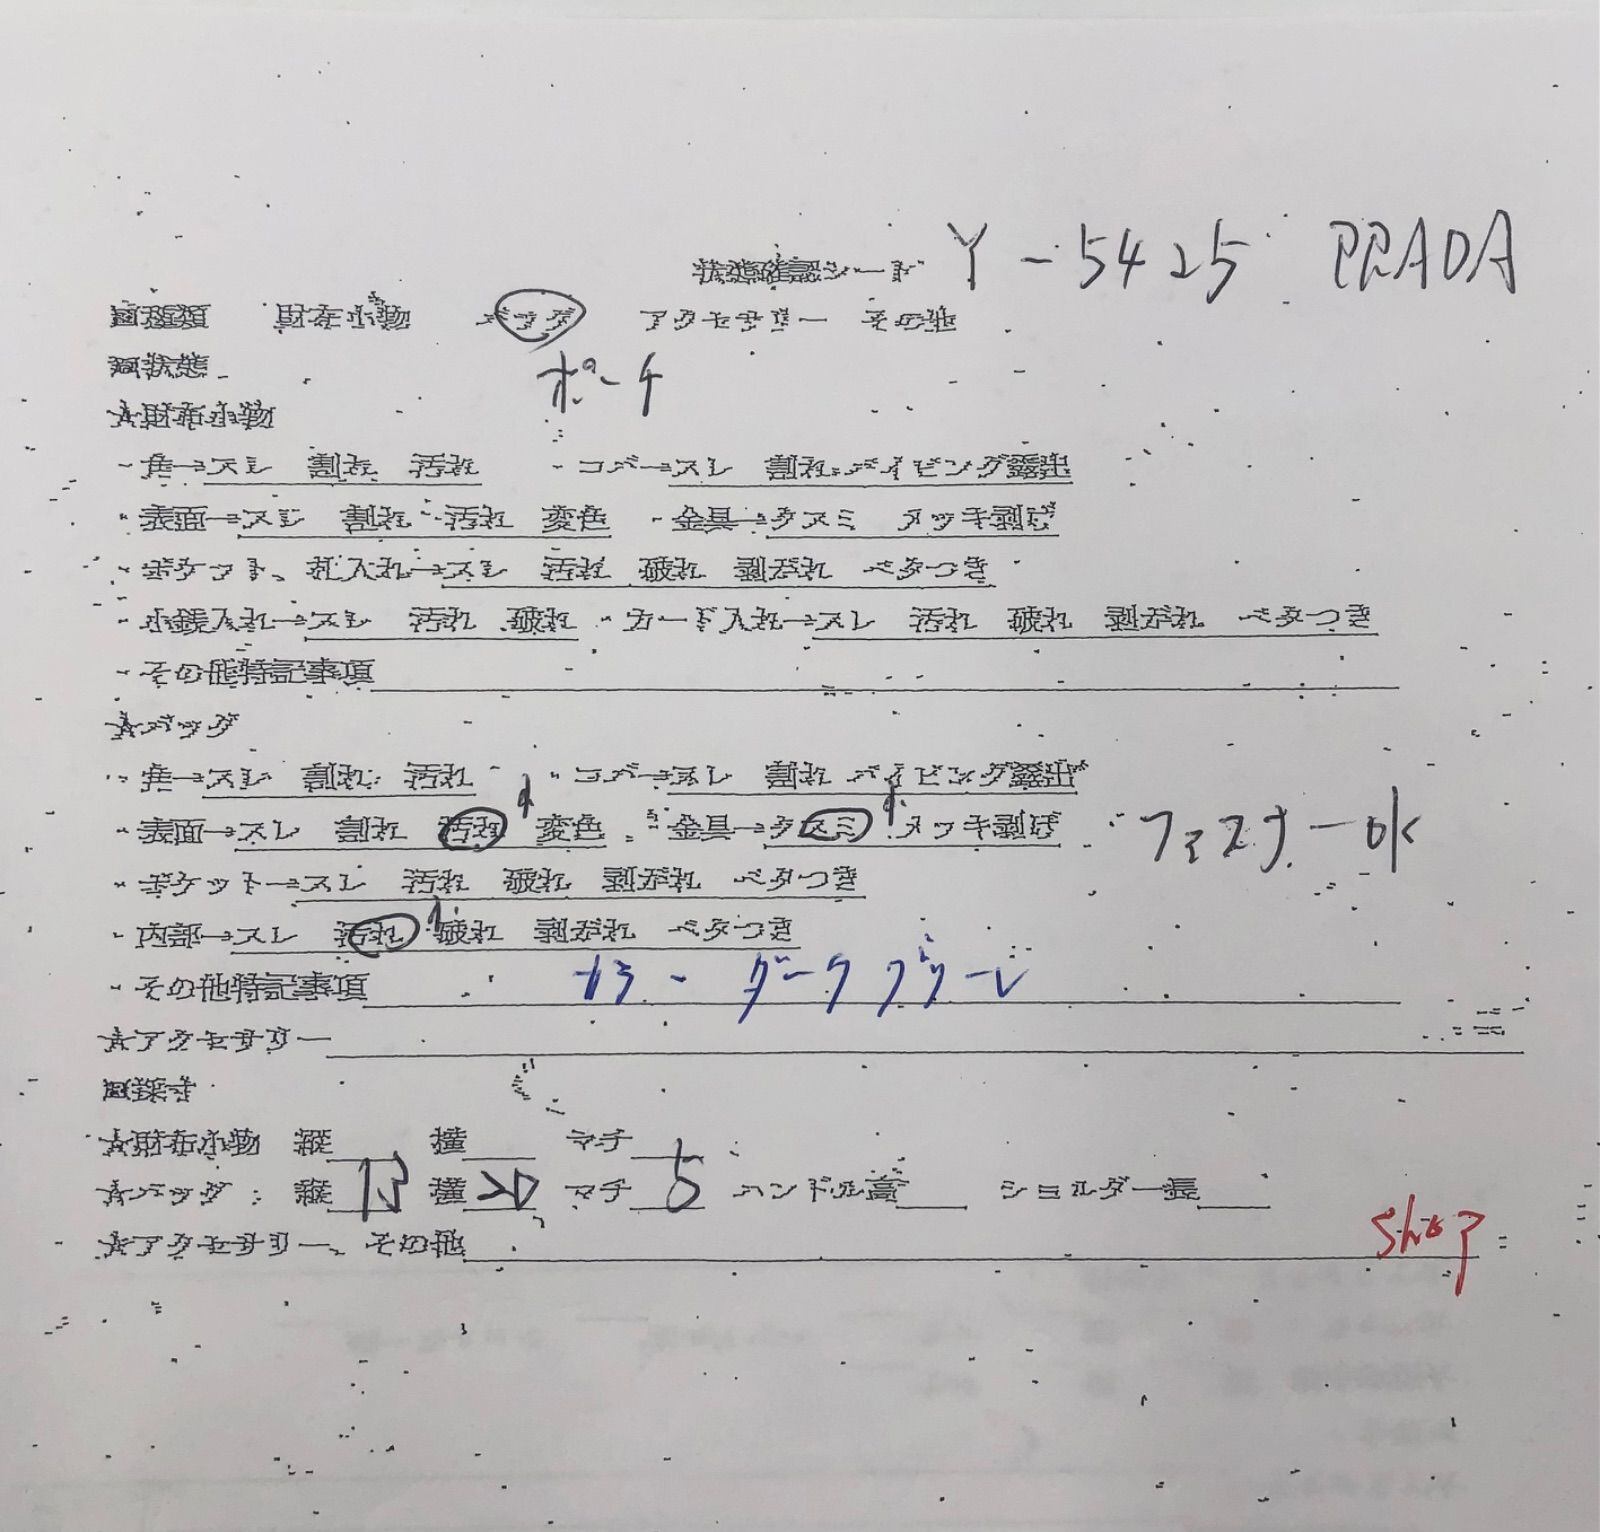 状態確認シート Y-5425 PRADA
回種類 財布小物 バッグ アクセサリー その他
回状態 ポーチ
☆財布小物
・角→スレ 割れ 汚れ ・コバ→スレ 割れ パイピング露出
・表面→スレ 割れ 汚れ 変色 ・金具→クスミ メッキ剥げ
・ポケット、札入れ→スレ 汚れ 破れ 剥がれ ベタつき
・小銭入れ→スレ 汚れ 破れ ・カード入れ→スレ 汚れ 破れ 剥がれ ベタつき
・その他特記事項
☆バッグ
・角→スレ 割れ 汚れ ・コバ→スレ 割れ パイピング露出
・表面→スレ 割れ 汚れ 変色 ・金具→クスミ メッキ剥げ ファスナーok
・ポケット→スレ 汚れ 破れ 剥がれ ベタつき
・内部→スレ 汚れ 破れ 剥がれ ベタつき
・その他特記事項 カラー ダークグリーン
☆アクセサリー
回採寸
☆財布小物 縦 横 マチ
☆バッグ: 縦13 横20 マチ5 ハンドル高 ショルダー長
☆アクセサリー、その他 shop